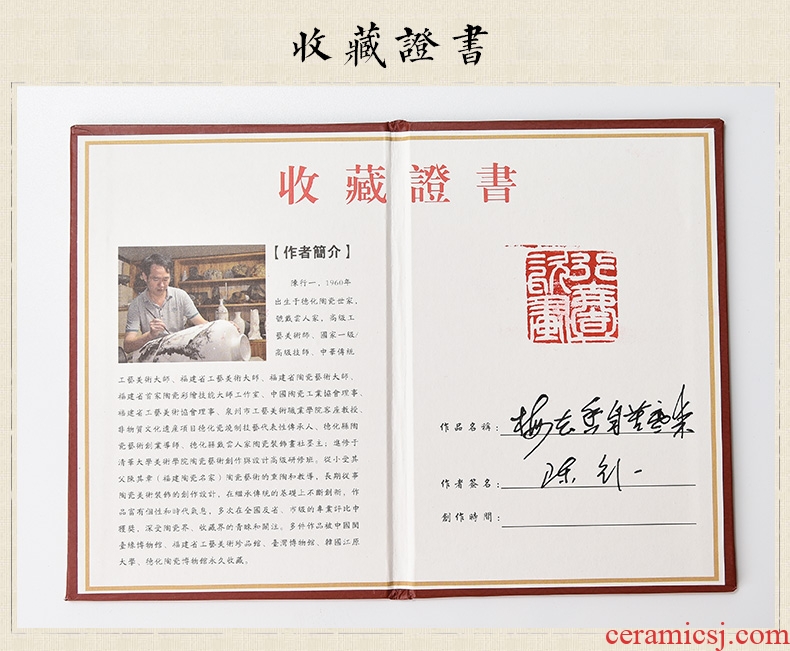 收藏證書
收藏證書
【作者簡介】
陳行一，1960年
出生于德化陶瓷世家，
號戴雲人家，高級工
藝美術師、國家一級/
高級技師、中華傳統
工藝美術大師、福建省工藝美術大師、福建省陶瓷藝術大師、
福建省首家陶瓷彩繪技能大師工作室、中國陶瓷工業協會理事、
福建省工藝美術協會理事、泉州市工藝美術職業學院客座教授、
非物質文化遺産項目德化瓷燒制技藝代表性傳承人、德化縣陶
瓷藝術創業導師、德化縣戴雲人家陶瓷裝飾畫社墨主；進修于
清華大學美術學院陶瓷藝術創作與設計高級研修班。從小受其
父陳其章（福建陶瓷名家）陶瓷藝術的熏陶和教導，長期從事
陶瓷美術裝飾的創作設計，在繼承傳統的基礎上不斷創新，作
品富有個性和時代氣息，多次在全國及省、市級的專業評比中
獲獎，深受陶瓷界、收藏界的青睞和關注。多件作品被中國閩
臺緣博物館、福建省工藝美術珍品館、臺灣博物館、韓國江原
大學、德化陶瓷博物館永久收藏。
作品名稱：梅花香自苦寒來
作者簽名：陳行一
創作時間：
ceramicsj.com